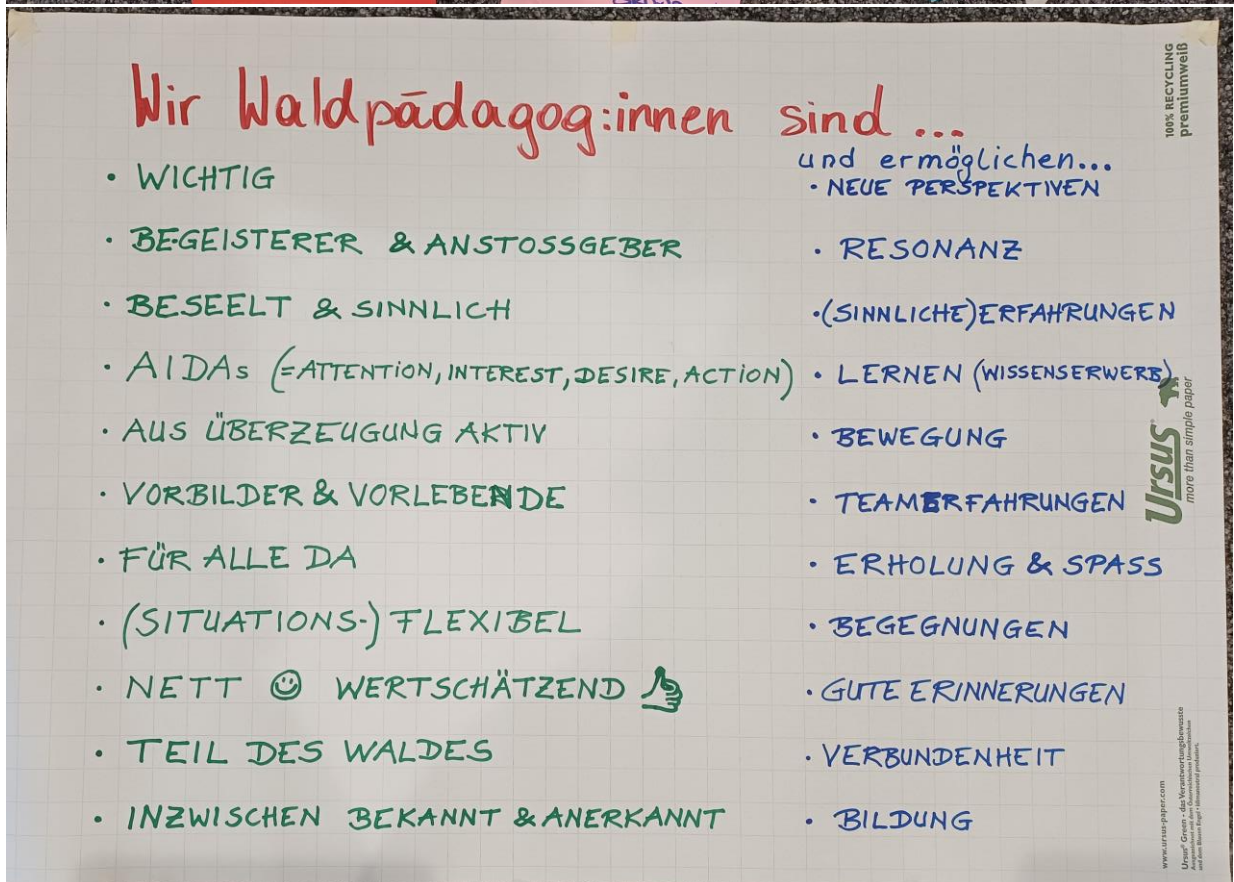 Wir Waldpädagog:innen sind ...
• WICHTIG
• BEGEISTERER & ANSTOSSGEBER
• BESEELT & SINNLICH
• AIDAs (=ATTENTION, INTEREST, DESIRE, ACTION)
• AUS ÜBERZEUGUNG AKTIV
• VORBILDER & VORLEBENDE
• FÜR ALLE DA
• (SITUATIONS-) FLEXIBEL
• NETT ☺ WERTSCHÄTZEND
• TEIL DES WALDES
• INZWISCHEN BEKANNT & ANERKANNT
und ermöglichen...
• NEUE PERSPEKTIVEN
• RESONANZ
• (SINNLICHE) ERFAHRUNGEN
• LERNEN (WISSENSERWERB)
• BEWEGUNG
• TEAMERFAHRUNGEN
• ERHOLUNG & SPASS
• BEGEGNUNGEN
• GUTE ERINNERUNGEN
• VERBUNDENHEIT
• BILDUNG
100% RECYCLING
premiumweiß
Ursus®
more than simple paper
www.ursus-paper.com
Ursus® Green - das Verantwortungsbewusste